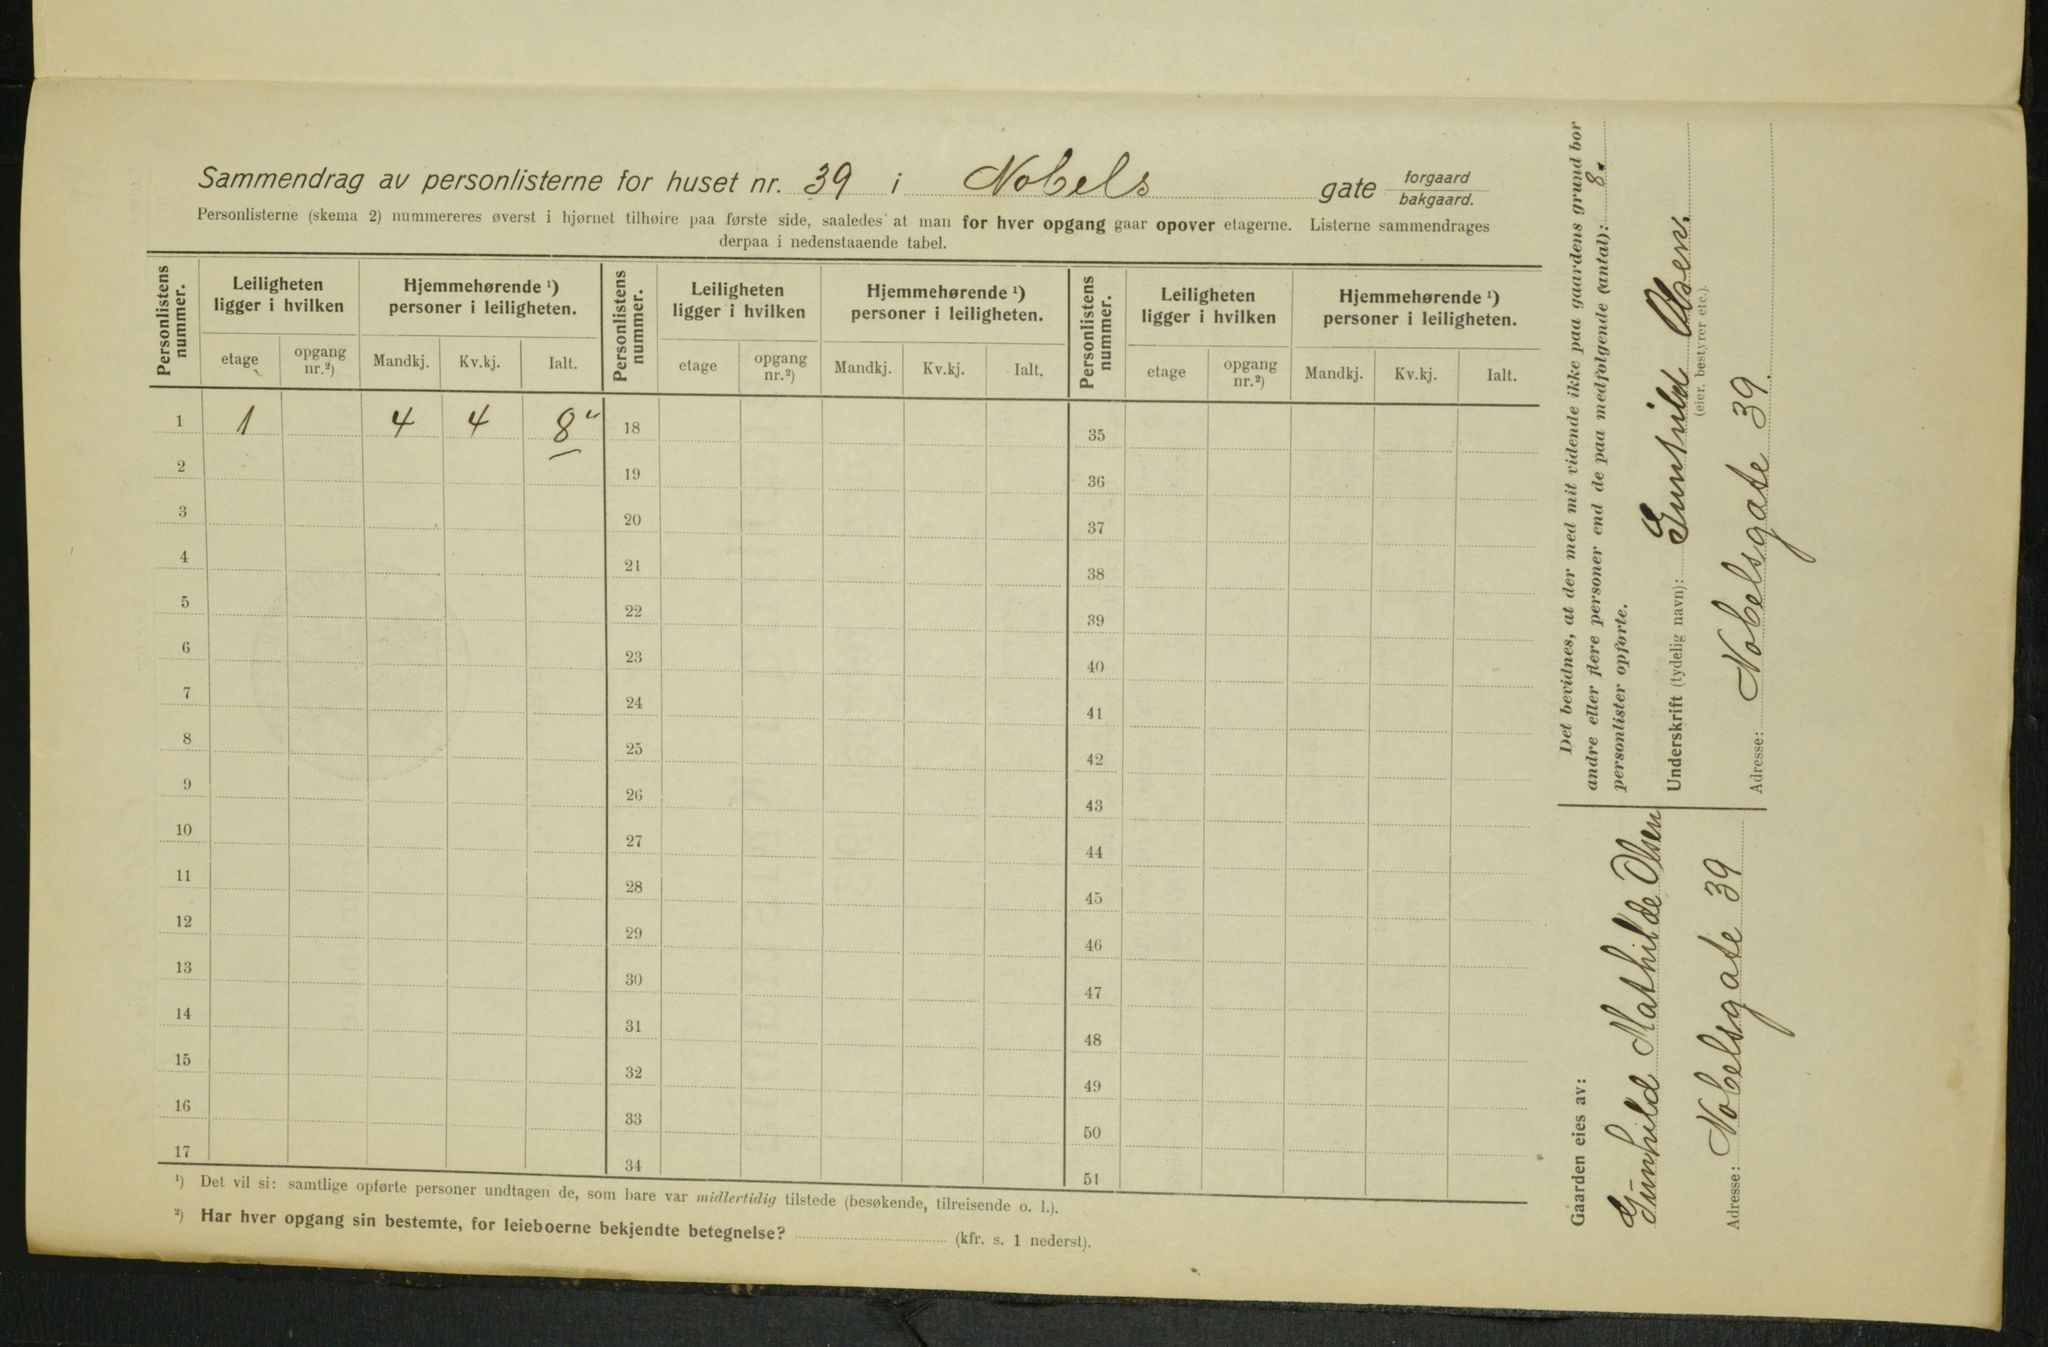 Sammendrag av personlisterne for huset nr. 39 i Nobels gate forgaard
bakgaard.
Personlisterne (skema 2) nummereres øverst i hjørnet tilhøire paa første side, saaledes at man for hver opgang gaar opover etagerne. Listerne sammendrages
derpaa i nedenstaaende tabel.
Personlistens nummer. Leiligheten ligger i hvilken Hjemmehørende ¹) personer i leiligheten. Personlistens nummer. Leiligheten ligger i hvilken Hjemmehørende ¹) personer i leiligheten. Personlistens nummer. Leiligheten ligger i hvilken Hjemmehørende ¹) personer i leiligheten.
etage opgang nr.²) Mandkj. Kv.kj. Ialt. etage opgang nr.²) Mandkj. Kv.kj. Ialt. etage opgang nr.²) Mandkj. Kv.kj. Ialt.
1 1 4 4 8 18 35
2 19 36
3 20 37
4 21 38
5 22 39
6 23 40
7 24 41
8 25 42
9 26 43
10 27 44
11 28 45
12 29 46
13 30 47
14 31 48
15 32 49
16 33 50
17 34 51
¹) Det vil si: samtlige opførte personer undtagen de, som bare var midlertidig tilstede (besøkende, tilreisende o. l.).
²) Har hver opgang sin bestemte, for leieboerne bekjendte betegnelse? (kfr. s. 1 nederst).
Det bevidnes, at der med mit vidende ikke paa gaardens grund bor
andre eller flere personer end de paa medfølgende (antal): 8.
personlister opførte.
Underskrift (tydelig navn): Gunhild Olsen.
(eier, bestyrer etc.).
Adresse: Nobelsgate 39.
Gaarden eies av:
Gunhild Mathilde Olsen
Adresse: Nobelsgate 39